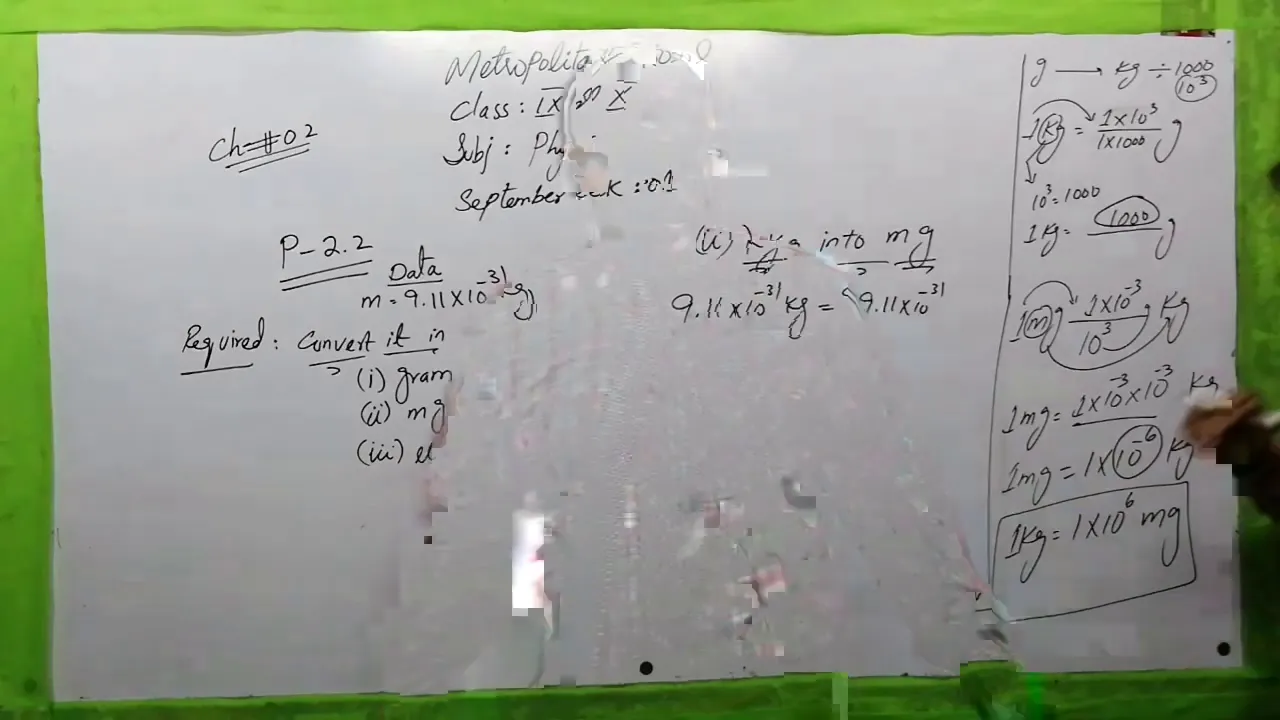 Class : IX X
Subj :
September : 01
Ch # 02
P-2.2
Data
m = 9.11x10^-31 kg
Required : Convert it in
(i) gram
(ii) mg
(iii)
(ii) into mg
9.11x10^-31 kg = 9.11x10^-31
g → kg ÷ 1000
10^3
1 kg = 1x10^3 / 1x1000 g
10^3 = 1000
1 kg = 1000 g
1 mg 1x10^-3 / 10^3 kg
1mg = 1x10^-3x10^-3 kg
1mg = 1x10^-6 kg
1Kg = 1x10^6 mg